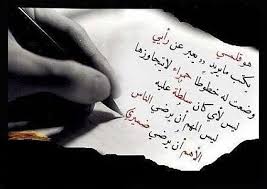 هو قلمي
يكتب ما يريد ,, يعبر عن رأيي
وضعت له خطوطاً حمراء لايتجاوزها
ليس لأي كان سلطة عليه
ليس المهم أن يرضي الناس
الأهم أن يرضي ضميري